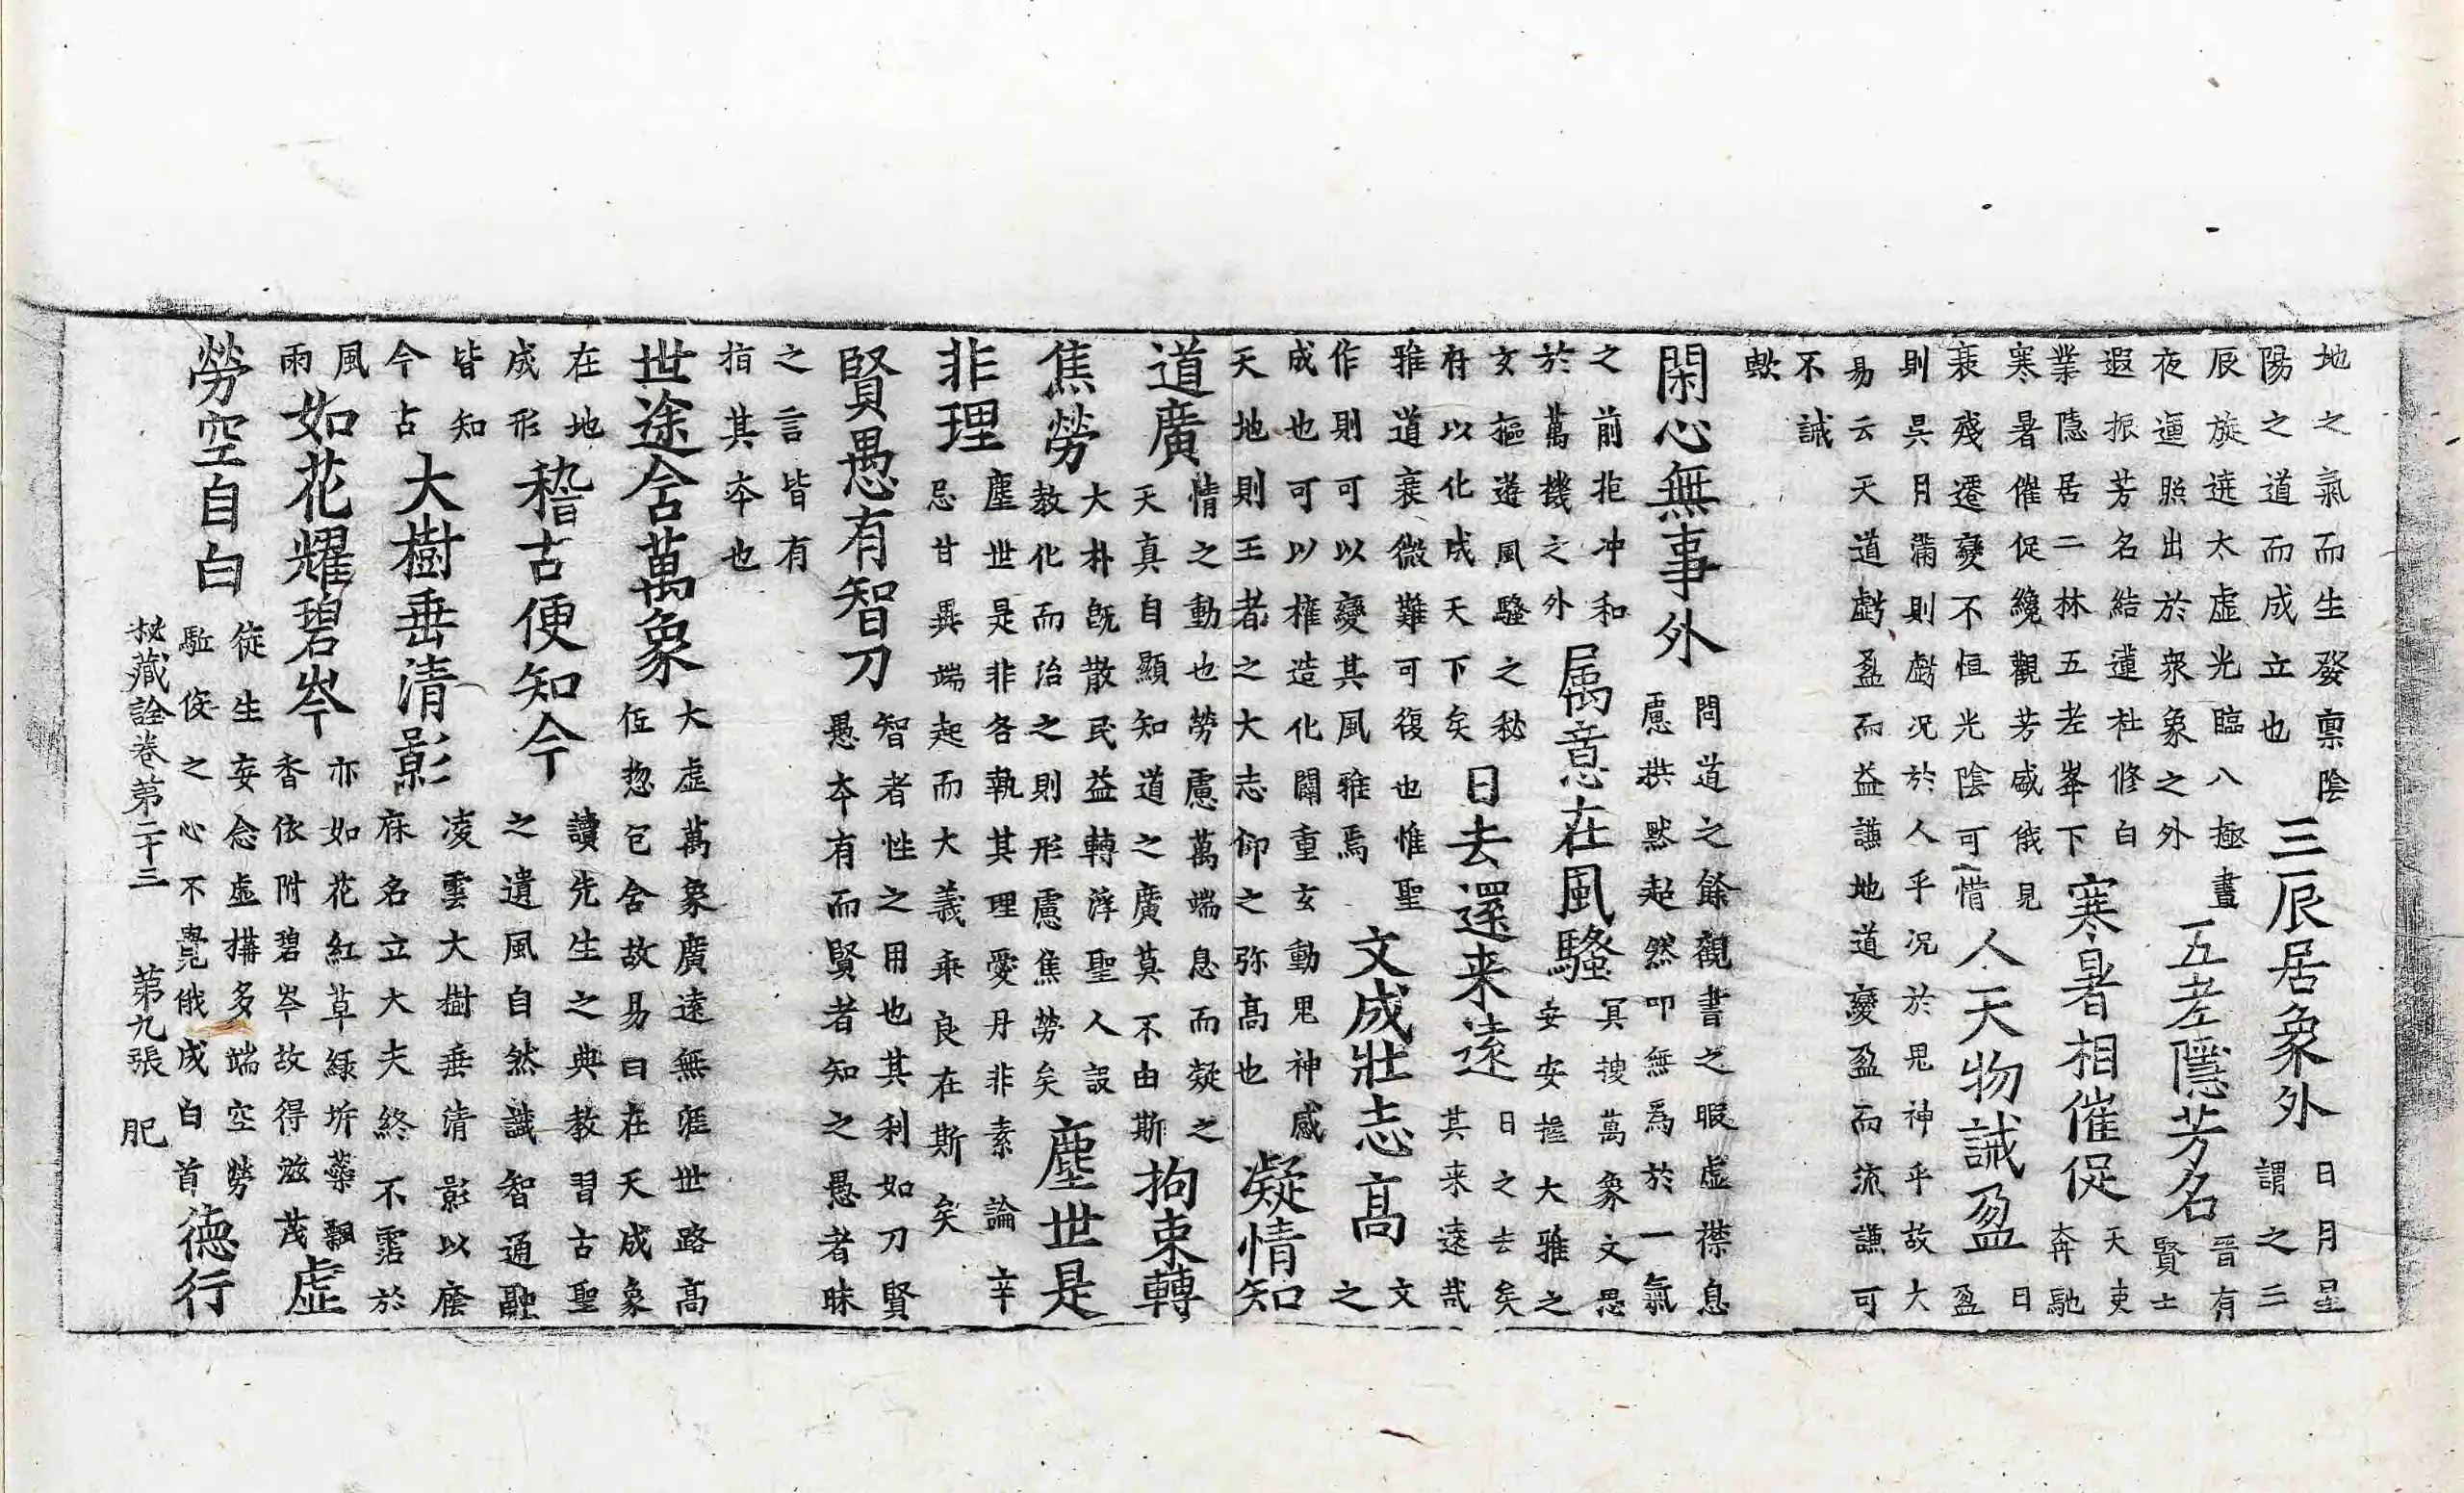 地之氣而生發稟陰陽之道而成立也三辰居象外日月星謂之三
辰旋遶太虛光臨八極晝夜迴照出於衆象之外五老隱芳名晉有賢士
遐振芳名結蓮社修白業隱居二林五老峯下寒暑相催促天吏奔馳
寒暑催促纔觀芳盛俄見衰殘遷變不恒光陰可惜人天物誡盈日盈
則昃月滿則虧况於人乎况於鬼神乎故大易云天道虧盈而益謙地道變盈而流謙可
不誡歟
閑心無事外問道之餘觀書之暇虛襟息慮拱默起然叩無爲於一氣
之前拒冲和於萬機之外屬意在風騷冥搜萬象文思安安握大雅之
文樞遊風騷之秘有以化成天下矣日去還来遠日之去矣其来遠哉
雅道衰微難可復也惟聖作則可以變其風雅焉文成壯志高文之
成也可以權造化闢重玄動鬼神感天地則王者之大志仰之弥高也凝情知
道廣情之動也勞慮萬端息而凝之天真自顯知道之廣莫不由斯拘束轉
焦勞大朴旣散民益轉浮聖人設教化而治之則形慮焦勞矣塵世是
非理塵世是非各執其理愛丹非素論辛忌甘異端起而大義乖良在斯矣
賢愚有智刀智者性之用也其利如刀賢愚夲有而賢者知之愚者昧
之言皆有指其夲也
世途含萬象大虛萬象廣遠無涯世路高低惣包含故易曰在天成象
在地成形稽古便知今讀先生之典教習古聖之遺風自然識智通融
皆知今古大樹垂清影凌雲大樹垂清影以廕庥名立大夫終不霑於
風雨如花耀碧岑亦如花紅草緑坼蘂飄香依附碧岑故得滋茂虛
勞空自白徒生妄念虛搆多端空勞駈役之心不覺俄成白首德行
秘藏詮卷第二十三 第九張 肥